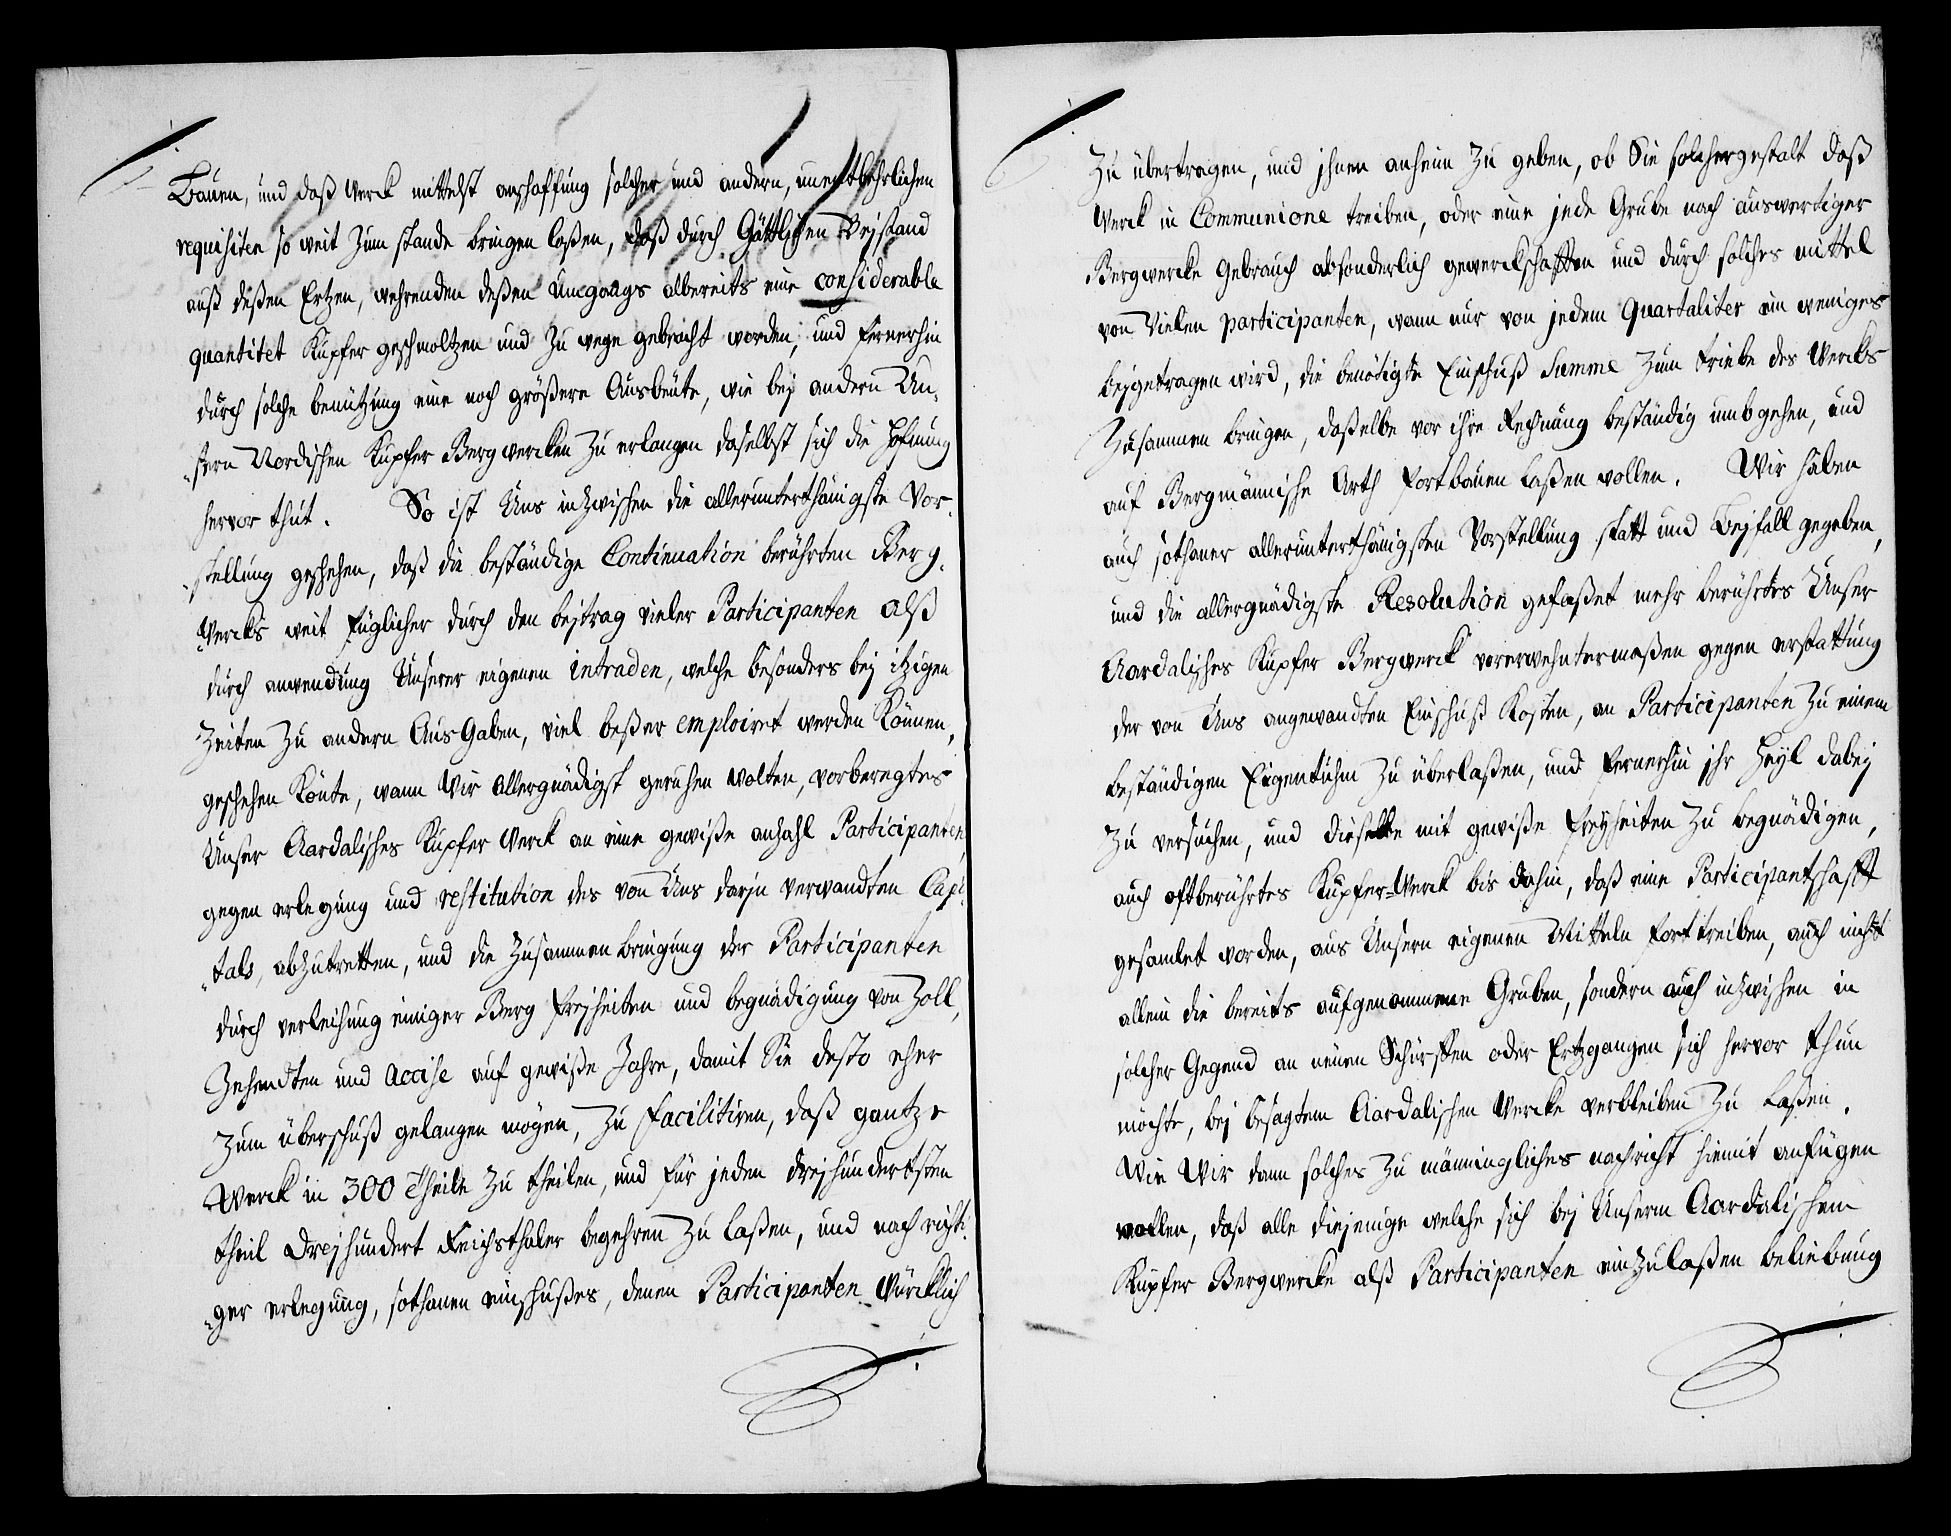 Bauen, und daß Werck mittelst anschaffung solcher und andern, unentbehrlichen
requisiten so weit zum stande bringen laßen, daß durch Göttlichen Beystand
auß deßen Ertzen, wehrenden deßen Umgangs albereits eine considerable
quantitet Kupfer geschmoltzen und zu wege gebracht worden, und fernerhin
durch solche benützung eine noch größere Ausbeute, wie bey andern Un-
sern Nordischen Kupfer Bergwercken zu erlangen daselbst sich die Hofnung
hervor thut. So ist Uns inzwischen die allerunterthänigste Vor-
stellung geschehen, daß die beständige Continuation berührten Berg-
Wercks weit füglicher durch den beytrag vieler Participanten alß
durch anwendung Unserer eigenen intraden, welche besonders bey itzigen
Zeiten zu andern AusGaben, viel beßer emploiret werden können,
geschehen könte, wann Wir Allergnädigst geruhen wolten, vorberegtes
Unser Aardalisches Kupfer Werck an eine gewiße anzahl Participanten,
gegen erlegung und restitution des von Uns darjn verwandten Capi-
tals, abzutretten, und die Zusammenbringung der Participanten
durch verleihung einiger Berg freyheiten und begnädigung von Zoll,
Zehendten und Accise auf gewiße Jahre, damit Sie desto eher
zum überschuß gelangen mögen, zu facilitiren, daß gantze
Werck in 300 Theile zu theilen, und für jeden dreyhundertsten
theil Dreyhundert Reichsthaler begehren zu laßen, und nach richti-
ger erlegung, sothanen einschußes, denen Participanten Würcklich
zu übertragen, und jhnen anheim zu geben, ob Sie solchergestalt daß
Werck in Communione treiben, oder eine jede Grube nach auswertiger
Bergwercke Gebrauch absonderlich gewerckschafften und durch solches mittel
von Vielen participanten, wann nur von jedem Quartaliter ein weniges
beygetragen wird, die benötigte Einschuß Summe zum triebe des Wercks
zusammen bringen, daßelbe vor ihre Rechnung beständig umbgehen, und
auf Bergmännische Arth fortbauen laßen wollen. Wir haben
auch sothaner allerunterthänigsten Vorstellung statt und Beyfall gegeben,
und die allergnädigste Resolution gefaßet mehr berührtes Unser
Aardalisches Kupfer Bergwerck vorerwehntermaßen gegen erstattung
der von Uns angewandten Einschuß Kosten, an Participanten zu einem
beständigen Eigentuhm zu überlaßen, und fernerhin jhr Heyl dabey
zu versuchen, und dieselbe mit gewiße freyheiten zu begnädigen,
auch oftberührtes Kupfer-Werck bis dahin, daß eine Participantschafft
gesamlet worden, aus Unsern eigenen Mitteln forttreiben, auch nicht
allein die bereits aufgenommene Gruben, sondern auch inzwischen in
solcher Gegend an neuen Schürffen oder Ertzgangen sich hervor thun
möchte, bey besagtem Aardalischen Wercke verbleiben zu laßen.
Wie Wir dann solches zu männingliches nachricht hiemit anfügen
wollen, daß alle diejenige welche sich bey Unserm Aardalischem
Kupfer Bergwercke alß Participanten einzulaßen beliebung